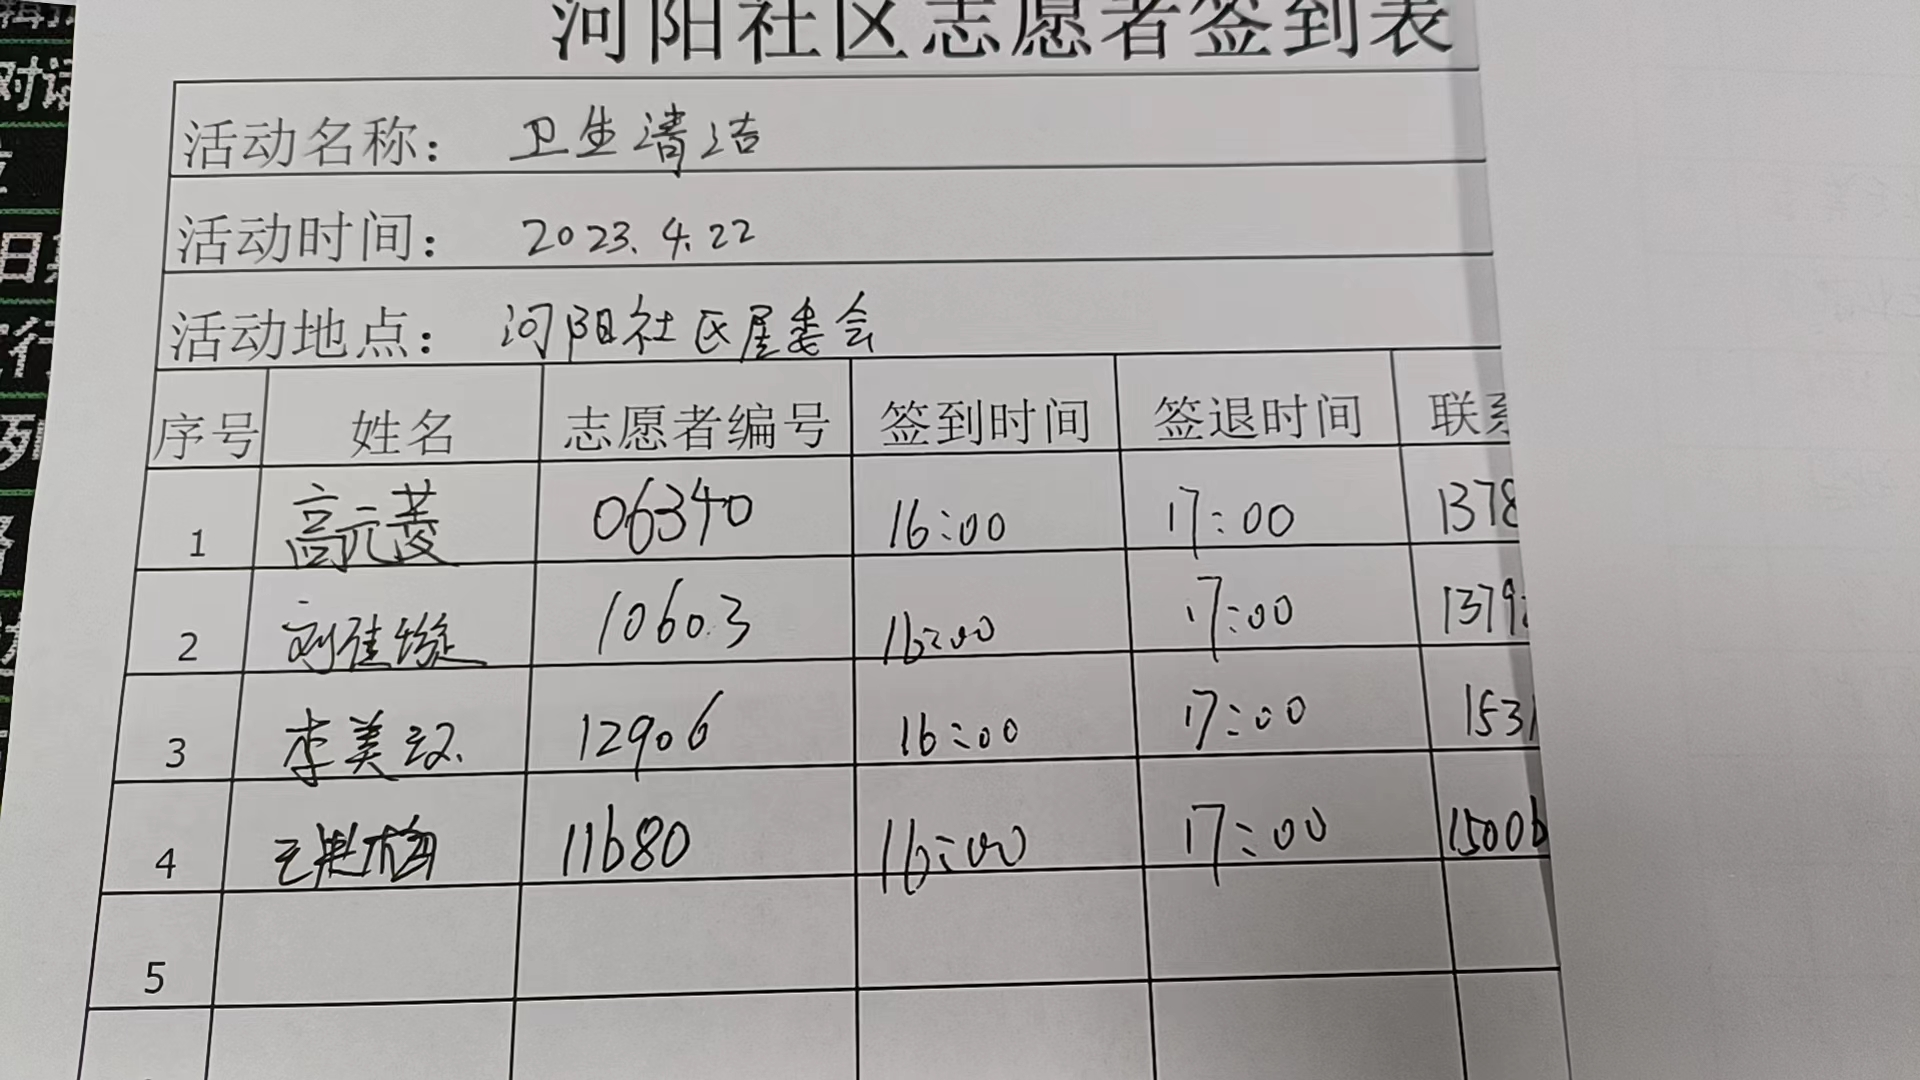 河阳社区志愿者签到表
活动名称： 卫生清洁
活动时间： 2023.4.22
活动地点： 河阳社区居委会
序号 姓名 志愿者编号 签到时间 签退时间 联系
1 高元菱 06340 16:00 17:00 1378
2 刘佳璇 10603 16:00 17:00 1379
3 李美 12906 16:00 17:00 1531
4 王 梅 11680 16:00 17:00 15006
5